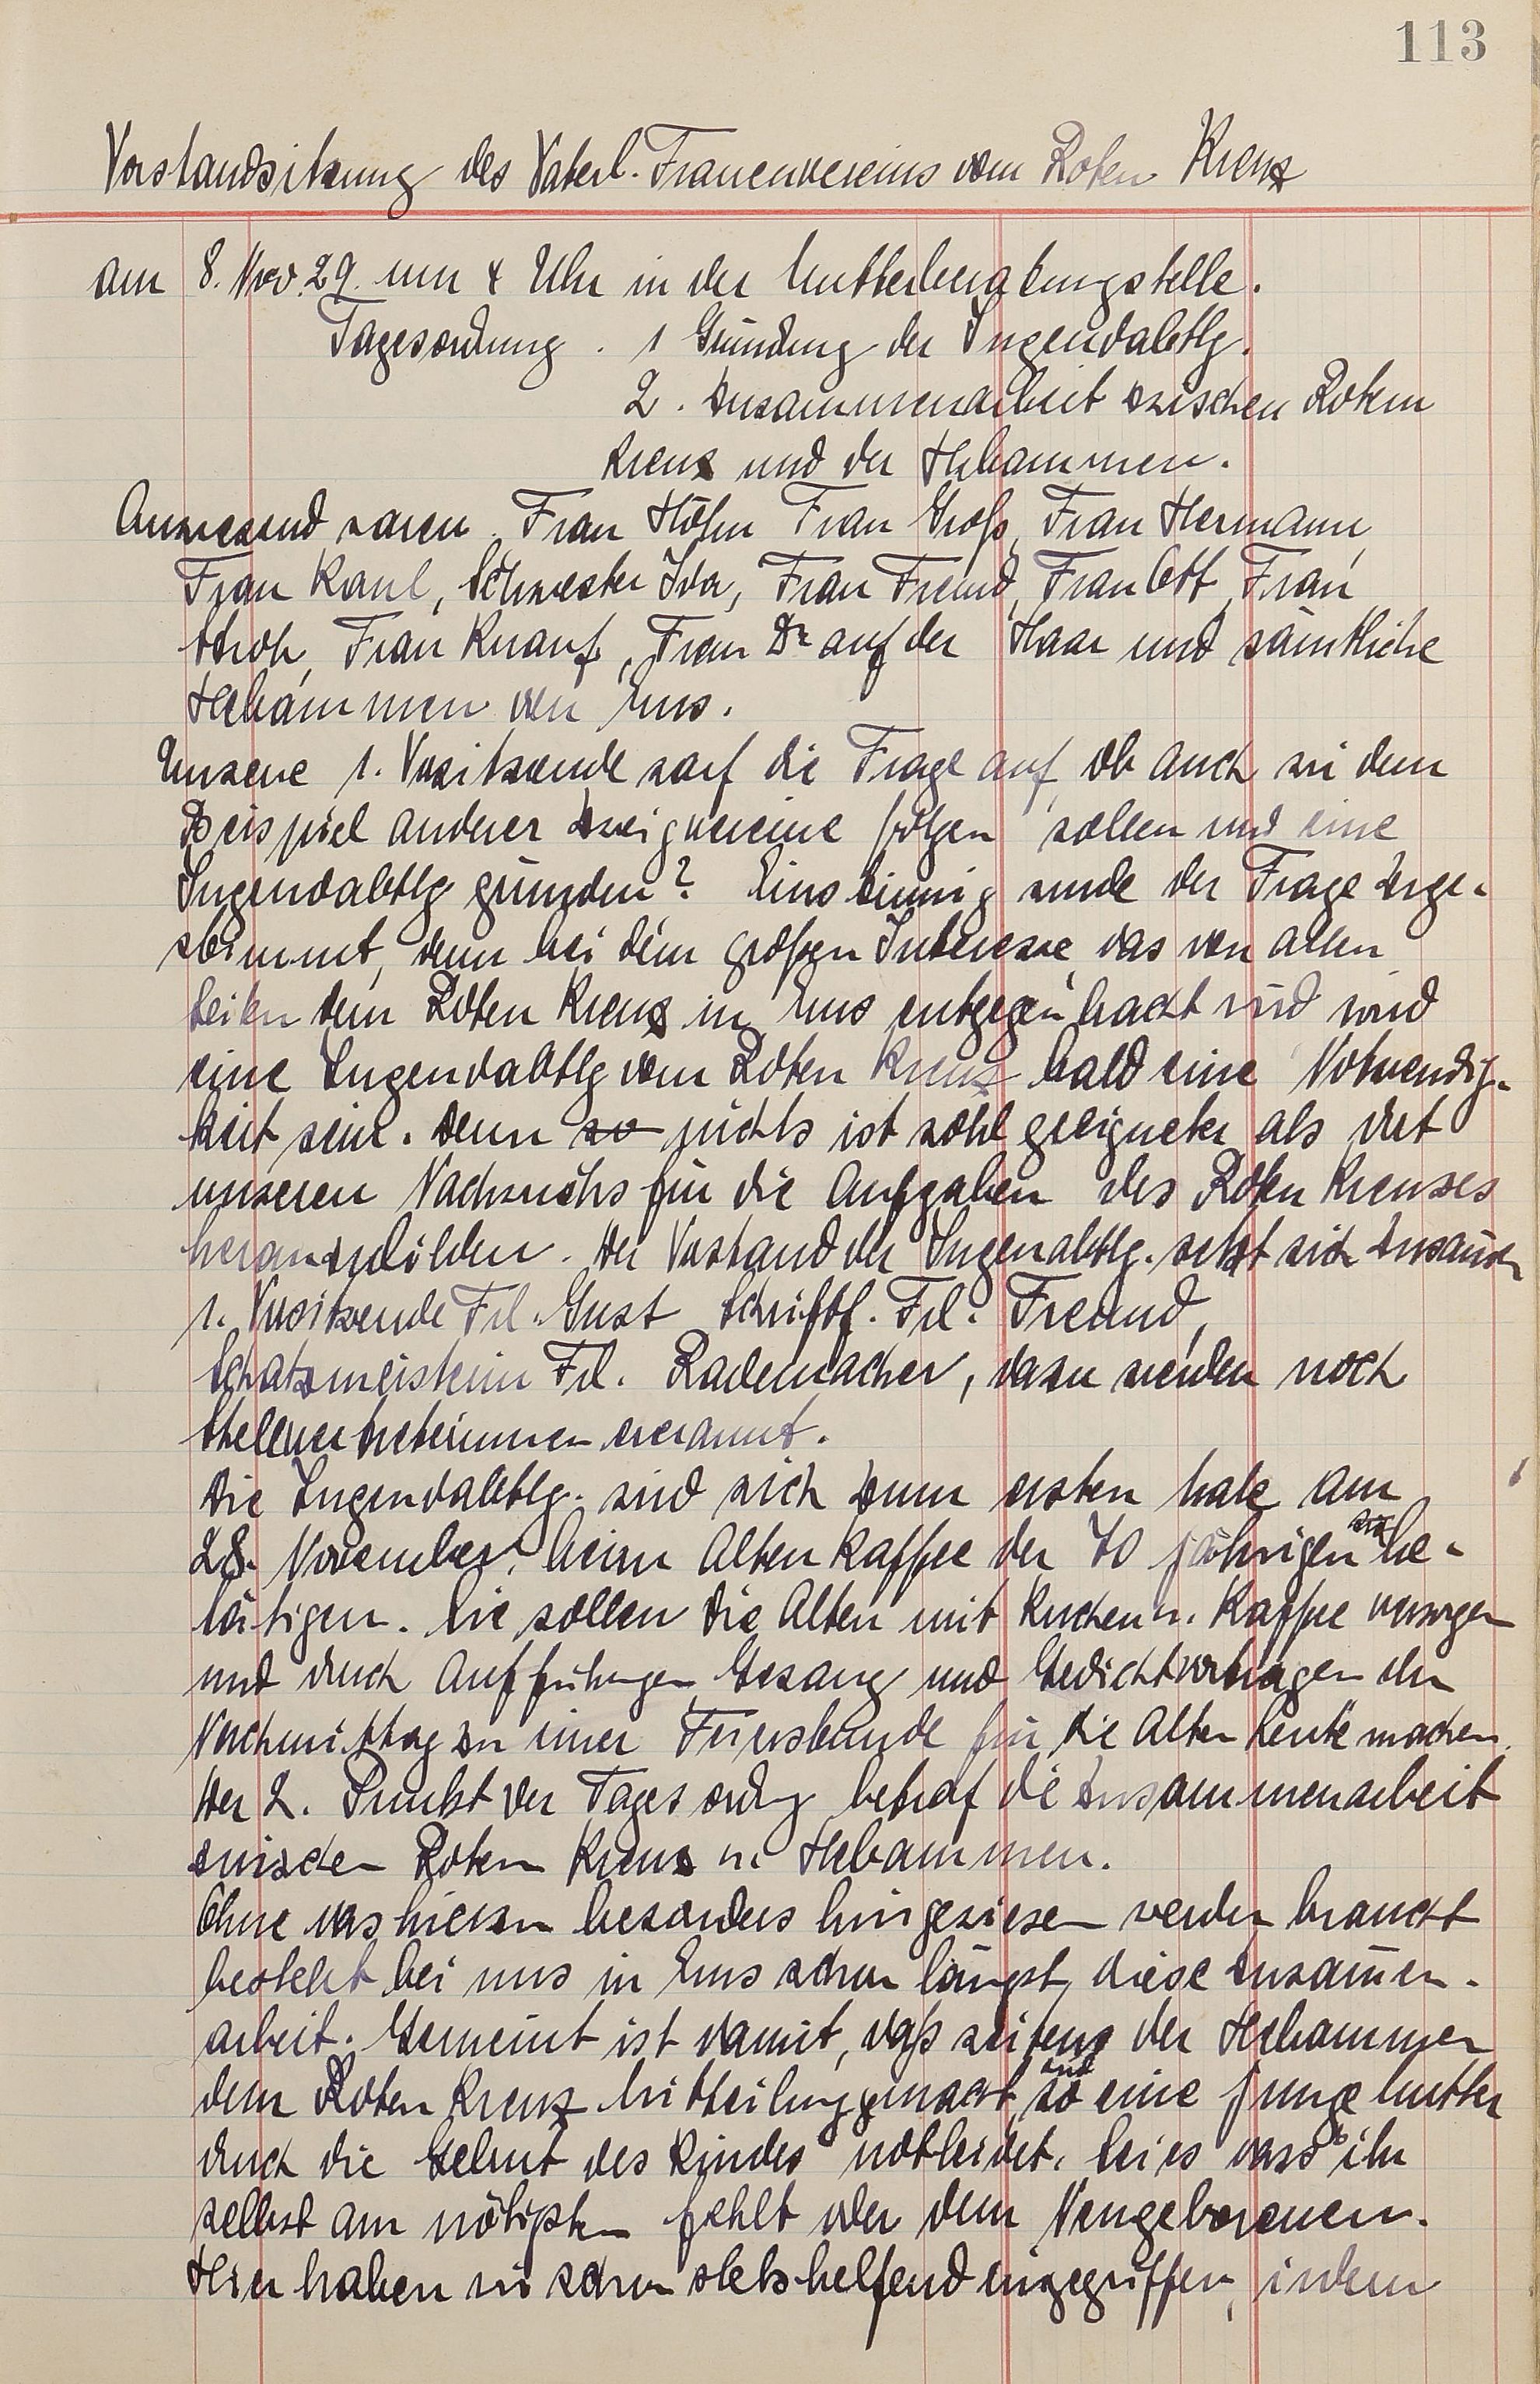 113
Vorstandsitzung des Vaterl. Frauenvereins vom Roten Kreuz
am 8. Nov. 29. um 4 Uhr in der Mutterberatungstelle.
Tagesordnung . 1 Gründung der Jugendabtlg.
2. Zusammenarbeit zwischen Rotem
Kreuz und der Hebammen.
Anwesend waren. Frau Höhn Frau Groß, Frau Hermann,
Frau Kaul, Schwester Ida, Frau Freund, Frau Ott, Frau
Stroh, Frau Knauf, Frau Dr auf der Haar und sämtliche
Hebammen von Ems.
Unsere 1. Vorsitzende warf die Frage auf, ob auch wir dem
Beispiel anderer Zweigvereine folgen sollen und eine
Jugendabtlg gründen? Einstimmig wurde der Frage zuge-
stimmt, denn bei dem großen Interesse, das von allen
Seiten dem Roten Kreuz in Ems entgegenbracht wird wird
eine Jugendabtlg vom Roten Kreuz bald eine Notwendig-
keit sein. Denn so nichts ist wohl geeigneter als dort
unseren Nachwuchs für die Aufgaben des Roten Kreuzes
heranzubilden. Der Vorstand der Jugenabtlg. setzt sich zusamen
1. Vorsitzende Frl. Gust Schriftf. Frl. Freund,
Schatzmeisterin Frl. Rademacher, dazu werden noch
Stellvertreterinnen ernannt.
Die Jugendabtlg. wird sich zum ersten Male am
28. November, beim Alten Kaffee der 70 jährigen sich be-
tätigen. Sie sollen die Alten mit Kuchen u. Kaffee versorgen
und durch Aufführungen Gesang und Gedichtvorträgen den
Nachmittag zu einer Feierstunde für die Alten Leute machen.
Der 2. Punkt der Tagesordng betraf die Zusammenarbeit
zwischen Rotem Kreuz u. Hebammen.
Ohne das hierzu besonders hingewiesen werden braucht
besteht bei uns in Ems schon längst diese Zusamen-
arbeit. Gemeint ist damit, daß seitens der Hebammen
dem Roten Kreuz Mitteilung gemacht wird wo eine junge Mutter
durch die Geburt des Kindes notleidet. Sei es dass es ihr
selbst am nötigsten fehlt oder dem Neugeborenen.
Hier haben wir schon stets helfend eingegriffen, indem